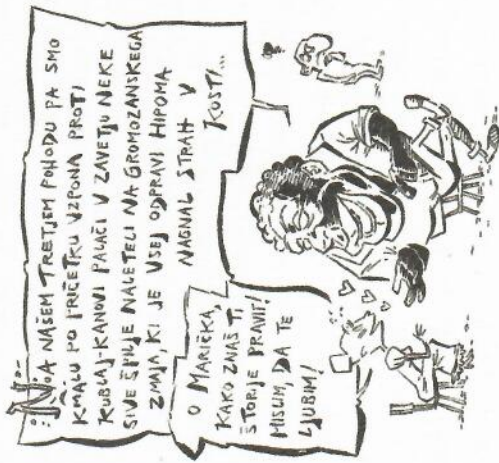 : Na našem tretjem pohodu pa smo
kmalu po pričetku vzpona proti
Kublaj-kanovi palači v zavetju neke
sive špilje naleteli na gromozanskega
zmaja, ki je vsej odpravi hipoma
nagnal strah v
kosti...
O Marička,
kako znaš ti
štorje pravit!
Mislim, da te
ljubim!